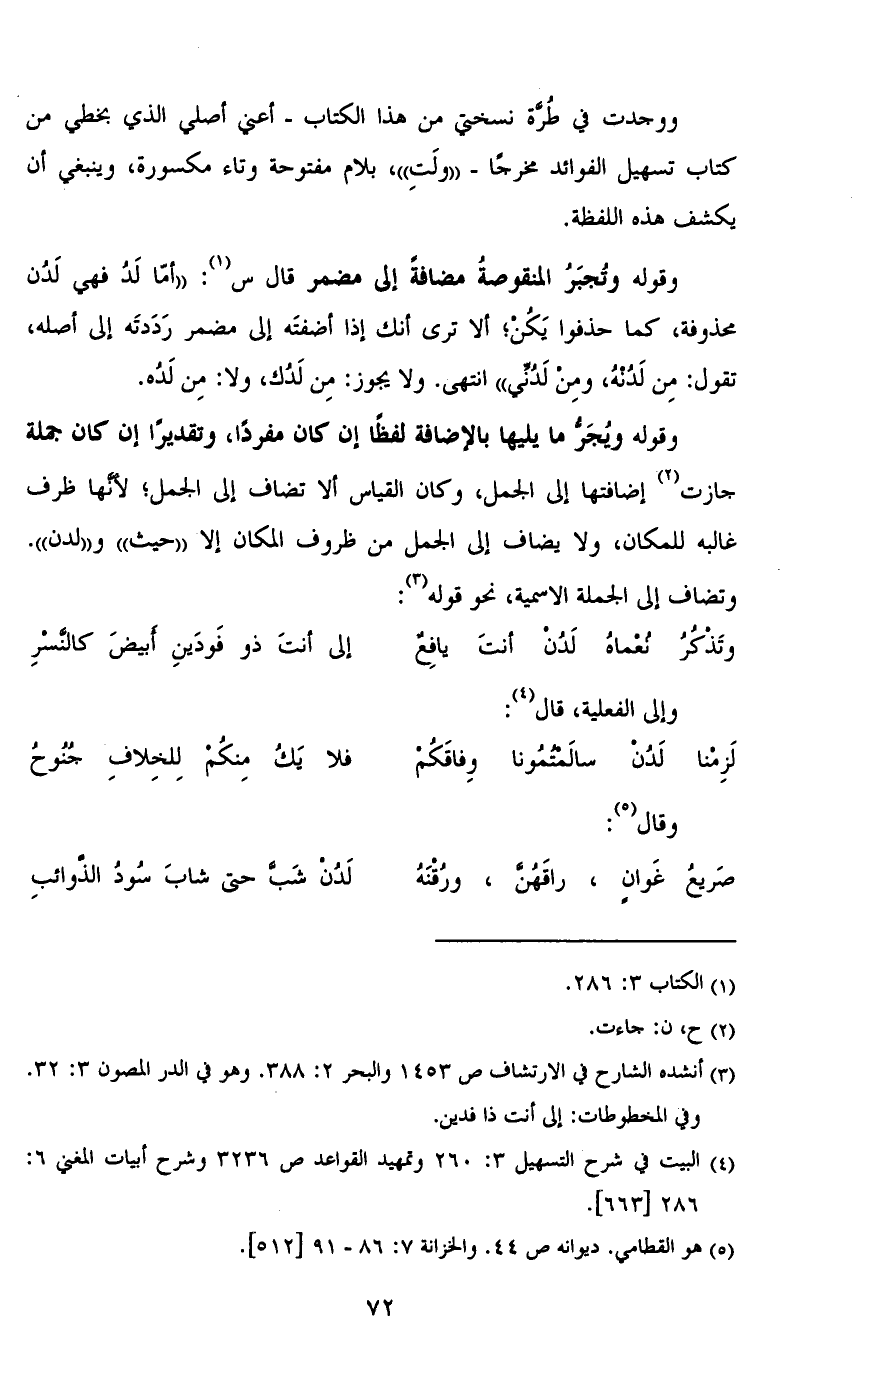 ووجدت في طُرَّة نسختي من هذا الكتاب - أعني أصلي الذي بخطي من
كتاب تسهيل الفوائد مخرجًا - «ولَتِ»، بلام مفتوحة وتاء مكسورة، وينبغي أن
يكشف هذه اللفظة.
وقوله وتُجبَرُ المنقوصةُ مضافةً إلى مضمر قال س(١): «أمّا لَدُ فهي لَدُن
محذوفة، كما حذفوا يَكُنْ؛ ألا ترى أنك إذا أضفتَه إلى مضمر رَدَدتَه إلى أصله،
تقول: مِن لَدُنْهُ، ومِنْ لَدُنِّي» انتهى. ولا يجوز: مِن لَدُك، ولا: مِن لَدُه.
وقوله ويُجَرُّ ما يليها بالإضافة لفظًا إن كان مفردًا، وتقديرًا إن كان جملة
جازت(٢) إضافتها إلى الجمل، وكان القياس ألا تضاف إلى الجمل؛ لأنَّها ظرف
غالبه للمكان، ولا يضاف إلى الجمل من ظروف المكان إلا «حيث» و«لدن».
وتضاف إلى الجملة الاسمية، نحو قوله(٣):
وتَذْكُرُ نُعْماهُ لَدُنْ أنتَ يافِعٌ إلى أنتَ ذو فَودَينِ أَبيضَ كالنَّسْرِ
وإلى الفعلية، قال(٤):
لَزِمْنا لَدُنْ سالَمْتُمُونا وِفاقَكُمْ فلا يَكُ مِنكُمْ لِلخِلافِ جُنُوحُ
وقال(٥):
صَريعُ غَوانٍ ، راقَهُنَّ ، ورُقْنَهُ لَدُنْ شَبَّ حتى شابَ سُودُ الذَّوائبِ
(١) الكتاب ٣: ٢٨٦.
(٢) ح، ن: جاءت.
(٣) أنشده الشارح في الارتشاف ص ١٤٥٣ والبحر ٢: ٣٨٨. وهو في الدر المصون ٣: ٣٢.
وفي المخطوطات: إلى أنت ذا فدين.
(٤) البيت في شرح التسهيل ٣: ٢٦٠ وتمهيد القواعد ص ٣٢٣٦ وشرح أبيات المغني ٦:
٢٨٦ [٦٦٣].
(٥) هو القطامي. ديوانه ص ٤٤. والخزانة ٧: ٨٦ - ٩١ [٥١٢].
٧٢